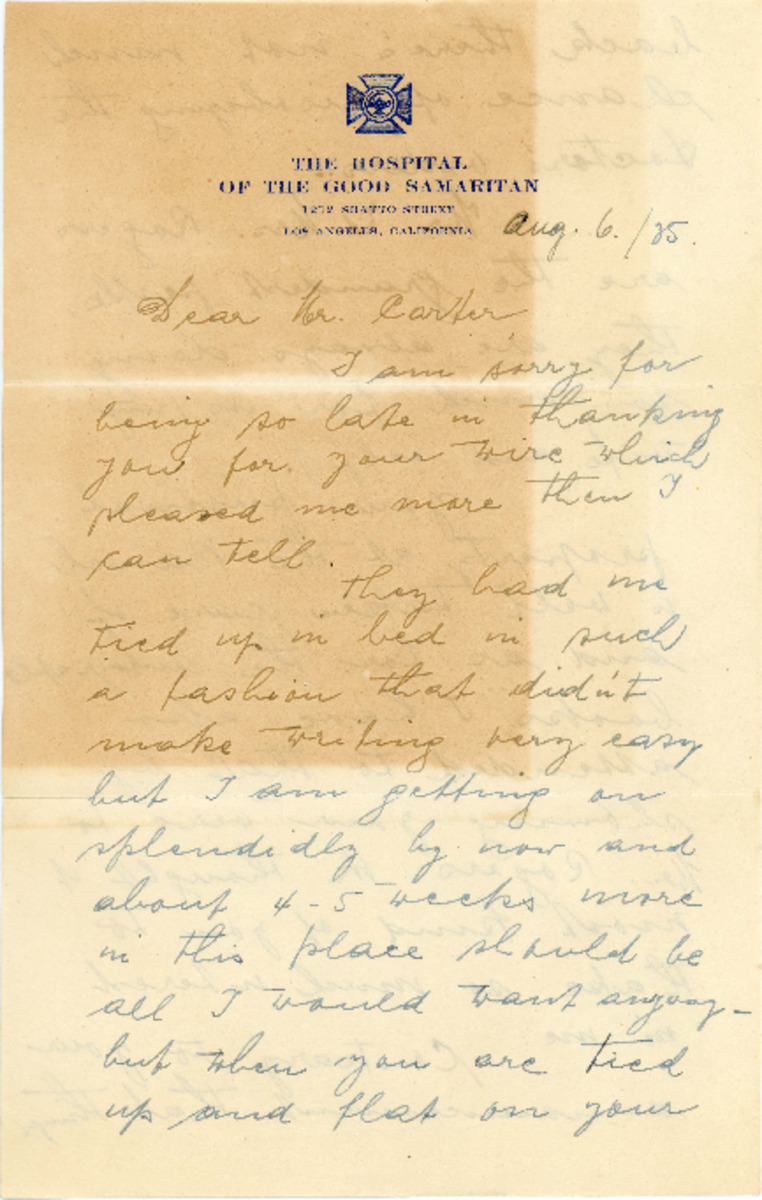 THE HOSPITAL
OF THE GOOD SAMARITAN
1212 SHATTO STREET
LOS ANGELES, CALIFORNIA
Aug. 6./35.
Dear Mr. Carter
I am sorry for
being so late in thanking
you for your wire which
pleased me more then I
can tell.
They had me
tied up in bed in such
a fashion that didn't
make writing very easy
but I am getting on
splendidly by now and
about 4-5 weeks more
in this place should be
all I would want anyway-
but when you are tied
up and flat on your